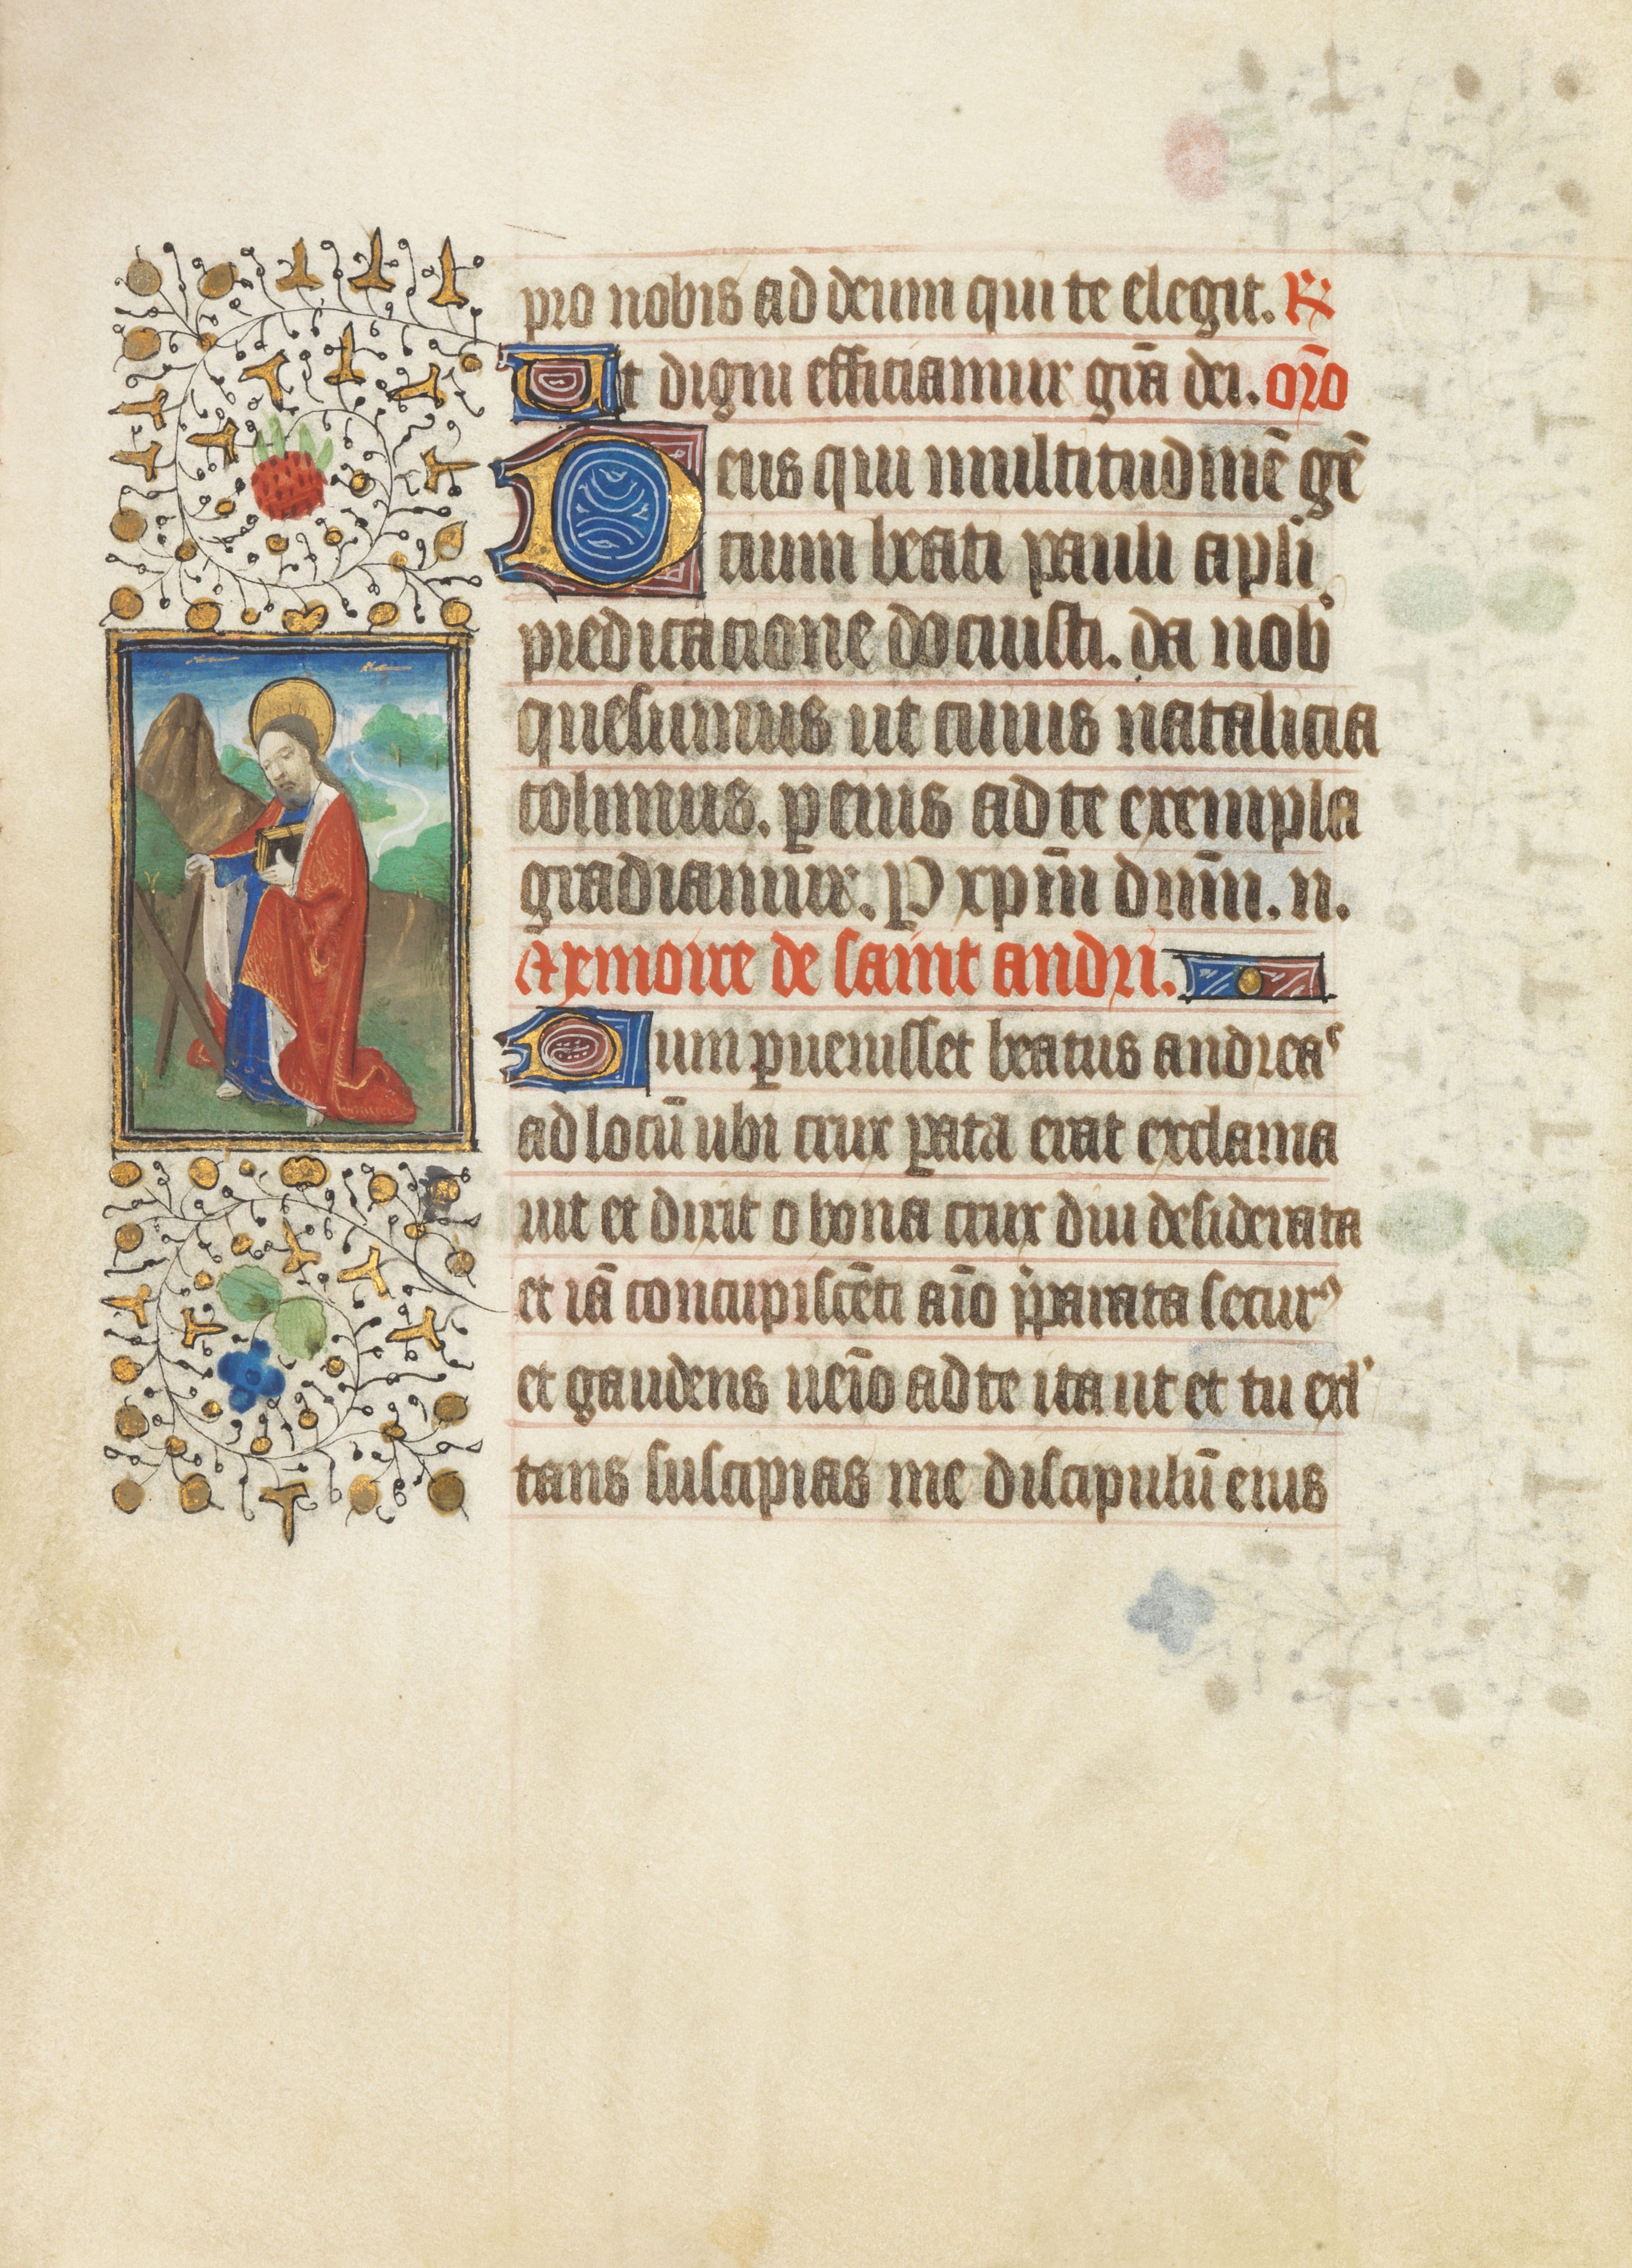 pro nobis ad deum qui te elegit. R
Ut digni efficiamur grā dei. orō
Deus qui multitudinē gē
cium beati pauli apli
predicacione docuisti. da nob'
quesumus ut cuius natalicia
colimus. ꝑ eius ad te exempla
gradiamur. P xpm̄ dnm̄. n.
Memoire de saint andri.
Cum ꝑuenisset beatus andreas
ad locū ubi crux ꝑata erat exclama
uit et dixit o bona crux diu desiderata
et iā concupiscēti aīo p̄parata secur⁹
et gaudens ueīo ad te ita ut et tu exl'
tans suscipias me discipulū eius